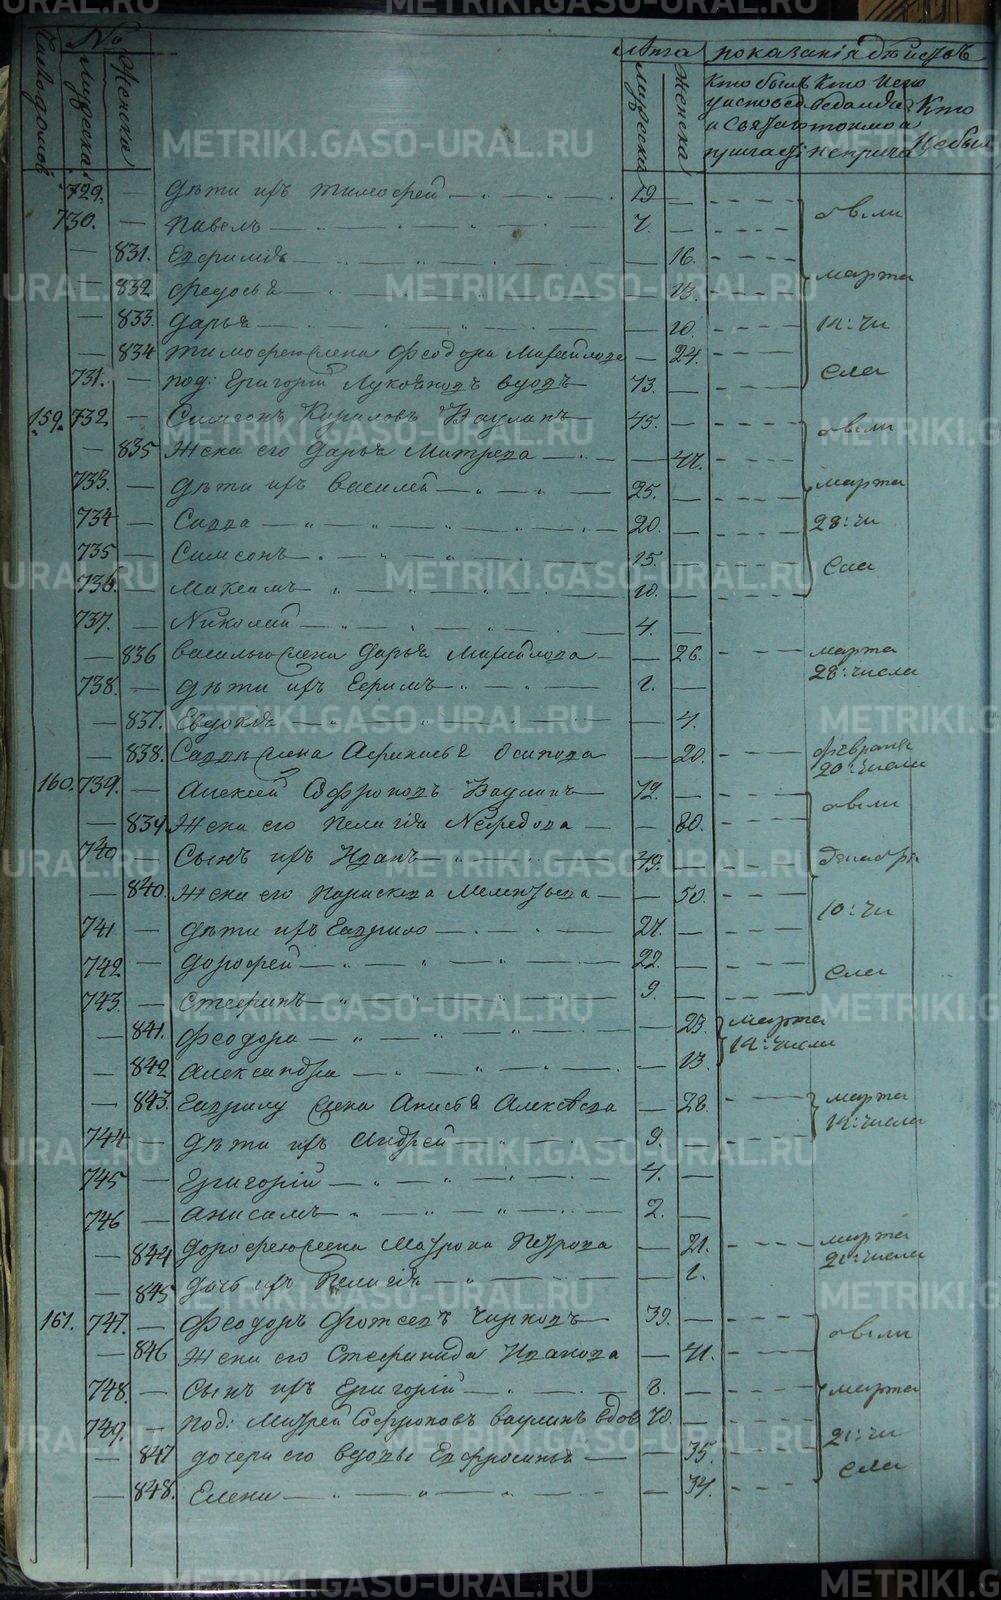 № Лѣта показанія дѣйствъ
Число домовъ Мужеска Женска Мужеска Женска Кто былъ у исповеди и Святаго причастія Кто исповедался токмо а не прича. Кто не былъ
729. — дѣти ихъ Тимофей — 19 —
730. — Павелъ — 7. — были
— 831. Евфимія — 16.
— 832 Федосья — 13. марта
— 833. Дарья — 10.
— 834 Тимофею жена Феодора Михайлова — 24. 14: чи
731. — под: Григорій Луковковъ вдовъ 73. — сла
159. 732 — Симеонъ Кириловъ Ваулинъ 45. — были
— 835 Жена его Дарья Митрева — 47.
733. — дѣти ихъ Василей — 25. — марта
734 — Савва — 20. — 28: чи
735 — Симеонъ — 15. —
736. — Максимъ — 10. — сла
737. — Николай — 4. —
— 836 Василью жена Дарья Михайлова — 26. марта
738. — дѣти ихъ Ефимъ — 2. — 28: числа
— 837. Евдокія — 4.
— 838. Саввы жена Афимья Осипова — 20. февраля 20: числа
160. 739. — Алексей Софроновъ Ваулинъ 72. — были
— 839. Жена его Пелагія Нефедова — 80.
740 — Сынъ ихъ Иванъ — 49. — декабря
— 840. Жена его Параскева Мелентьева — 50.
741 — дѣти ихъ Гаврило — 27. — 10: чи
742 — Дорофей — 22. — сла
743. — Стефанъ — 9. —
— 841. Феодора — 23. марта
— 842 Александра — 13. 14: числа
— 843. Гаврилу жена Анисья Алексѣева — 28. марта
744 — дѣти ихъ Андрей — 9. 14: числа
745 — Григорій — 4. —
746 — Анисимъ — 2. —
— 844 Дорофею жена Матрона Петрова — 21. марта
— 845 дочь ихъ Пелагія — 2. 21: числа
161. 747. — Феодоръ Фотеевъ Чирковъ — 39. — были
— 846 Жена его Стефанида Иванова — 41.
748. — Сынъ ихъ Григорій — 8. — марта
749. — под: Матфей Софроновъ Ваулинъ вдов 70. — 21: чи
— 847 дочери его вдовы Евфросинья — 35. сла
— 848. Елена — 34.
METRIKI.GASO-URAL.RU